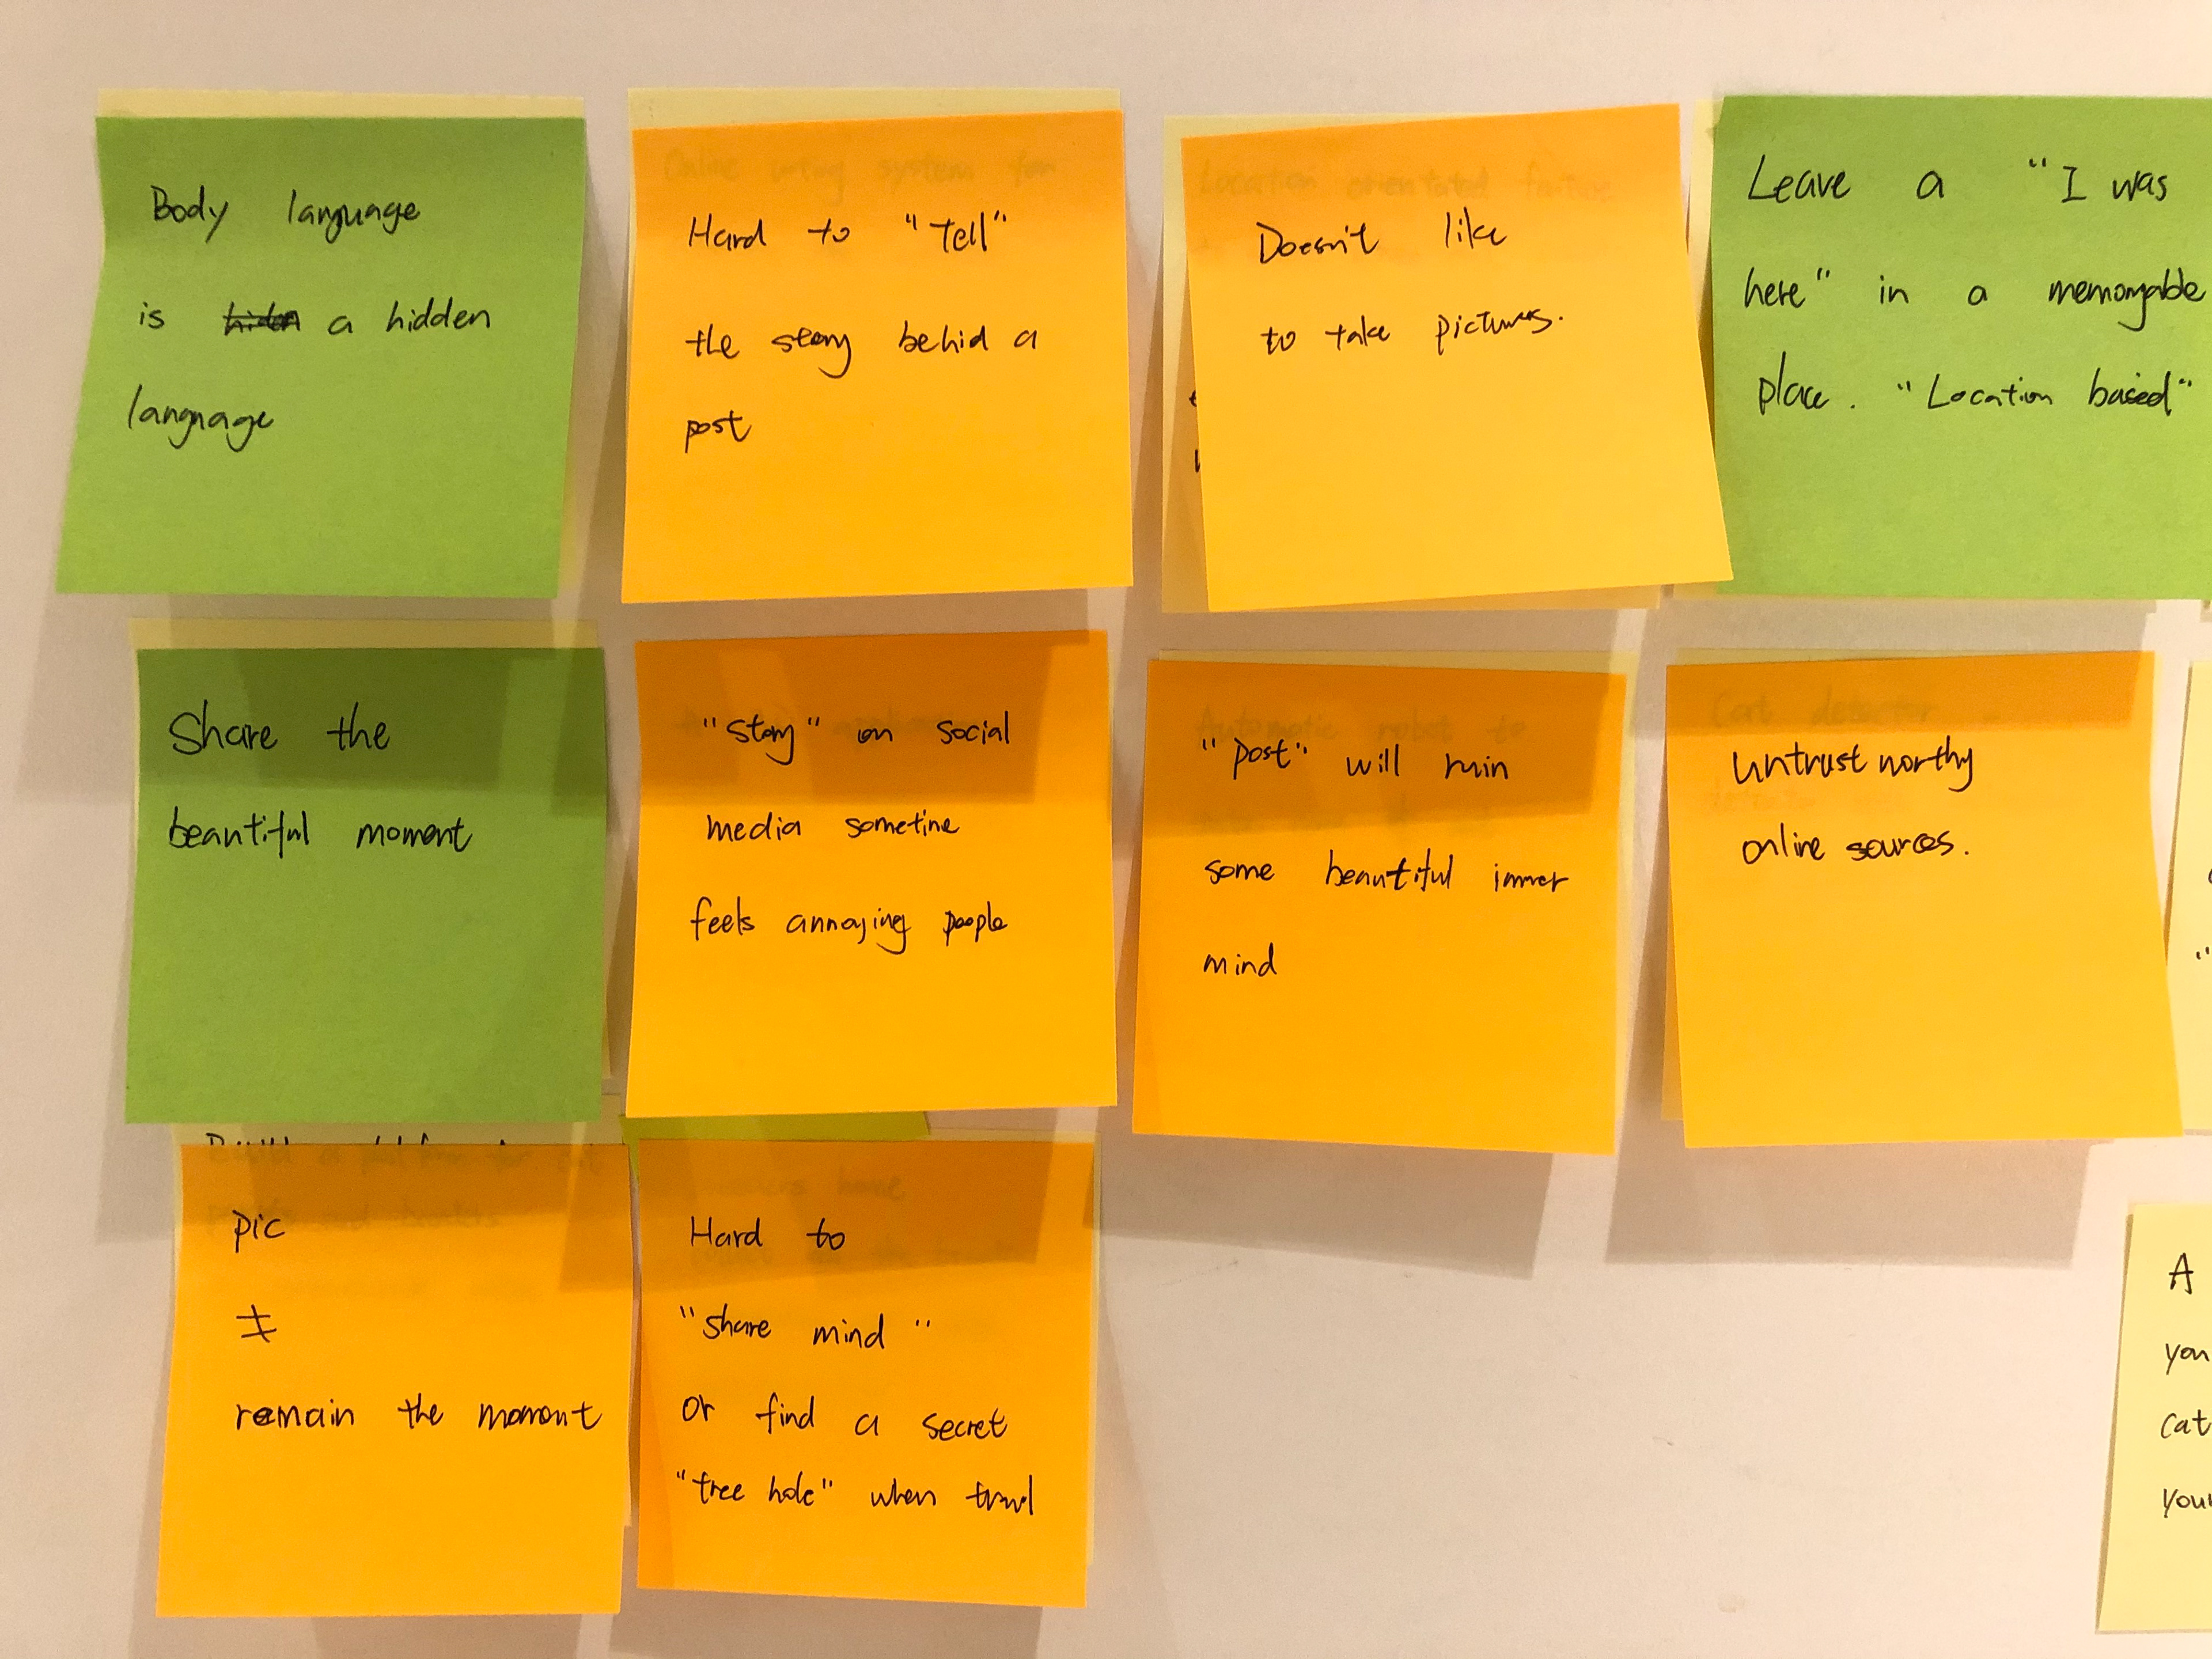 Body language
is a hidden
language
Hard to "Tell"
the story behid a
post
Doesn't like
to take pictures.
Leave a "I was
here" in a memorable
place. "Location based"
Share the
beautiful moment
"Story" on social
media sometime
feels annoying people
"post" will ruin
some beautiful inner
mind
untrustworthy
online sources.
pic
≠
remain the moment
Hard to
"share mind"
or find a secret
"tree hole" when travel
A
you
cat
your